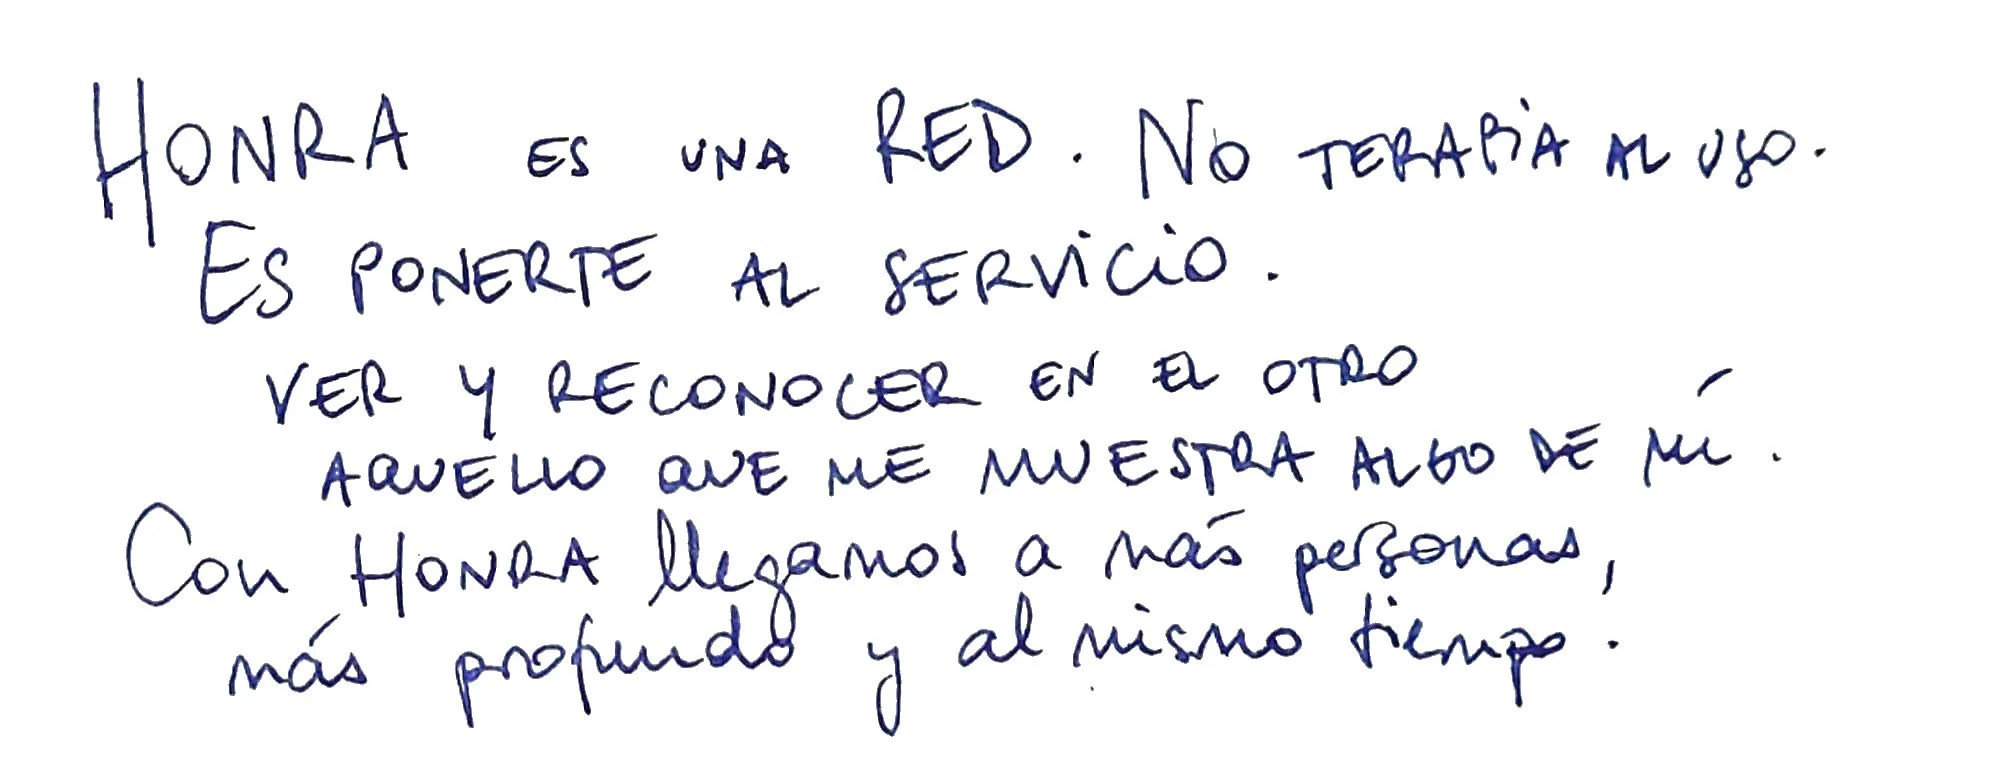 HONRA ES UNA RED. NO TERAPIA AL USO.
ES PONERTE AL SERVICIO.
VER Y RECONOCER EN EL OTRO
AQUELLO QUE ME MUESTRA ALGO DE MÍ.
Con HONRA llegamos a más personas,
más profundo y al mismo tiempo.